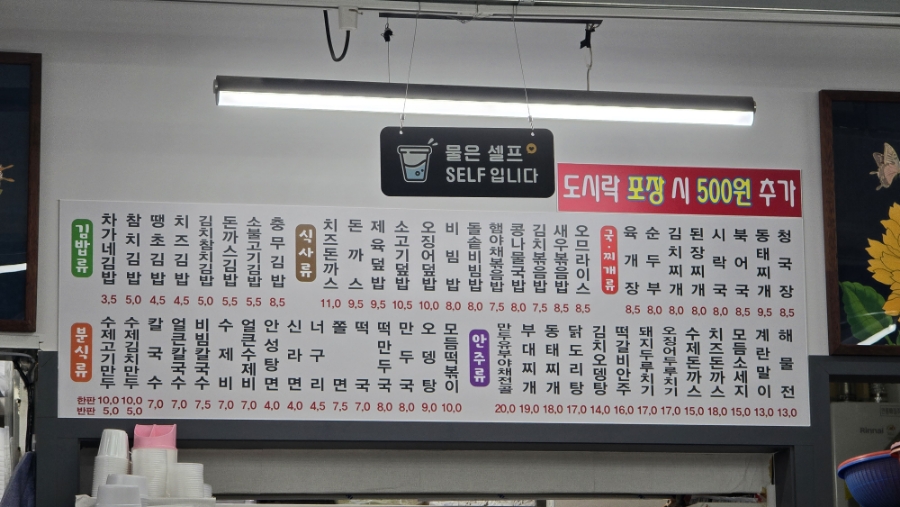 물은 셀프
SELF 입니다
도시락 포장 시 500원 추가
김밥류
차가네김밥 3,5
참치김밥 5,0
땡초김밥 4,5
치즈김밥 4,5
김치참치김밥 5,0
돈까스김밥 5,5
소불고기김밥 5,5
충무김밥 8,5
식사류
치즈돈까스 11,0
돈까스 9,5
제육덮밥 9,5
소고기덮밥 10,5
오징어덮밥 10,0
비빔밥 8,0
돌솥비빔밥 8,0
햄야채볶음밥 7,5
콩나물국밥 8,0
김치볶음밥 7,5
새우볶음밥 8,5
오므라이스 8,5
국·찌개류
육개장 8,5
순두부 8,0
김치찌개 8,0
된장찌개 8,0
시락국 8,0
북어국 8,5
동태찌개 9,5
청국장 8,5
분식류
한판
반판
수제고기만두 10,0 5,0
수제김치만두 10,0 5,0
칼국수 7,0
얼큰칼국수 7,5
비빔칼국수 7,5
수제비 7,0
얼큰수제비 7,5
안성탕면 4,0
신라면 4,0
너구리 4,5
쫄면 7,5
떡국 7,0
떡만두국 8,0
만두국 8,0
오뎅탕 9,0
모듬떡볶이 10,0
안주류
만두두부야채전골 20,0
부대찌개 19,0
동태찌개 18,0
닭도리탕 17,0
김치오뎅탕 14,0
떡갈비안주 16,0
돼지두루치기 17,0
오징어두루치기 17,0
수제돈까스 15,0
치즈돈까스 18,0
모듬소세지 15,0
계란말이 13,0
해물전 13,0